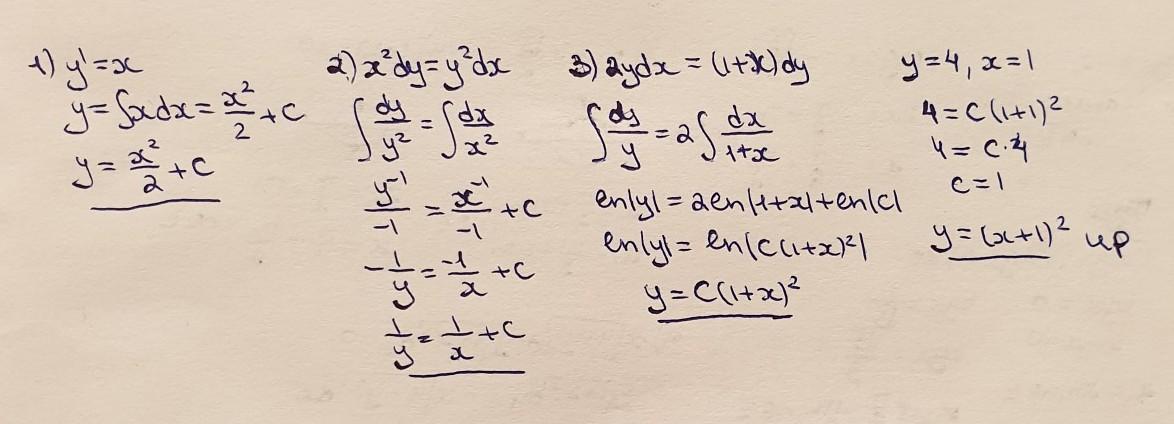 1) y' = x
y = ∫xdx = x²/2 + C
y = x²/2 + C
2) x²dy = y²dx
∫ dy/y² = ∫ dx/x²
y⁻¹/-1 = x⁻¹/-1 + C
-1/y = -1/x + C
1/y = 1/x + C
3) 2ydx = (1+x)dy
∫ dy/y = 2∫ dx/1+x
ln|y| = 2ln|1+x| + ln|C|
ln|y| = ln|C(1+x)²|
y = C(1+x)²
y=4, x=1
4 = C(1+1)²
4 = C·4
C = 1
y = (x+1)² up